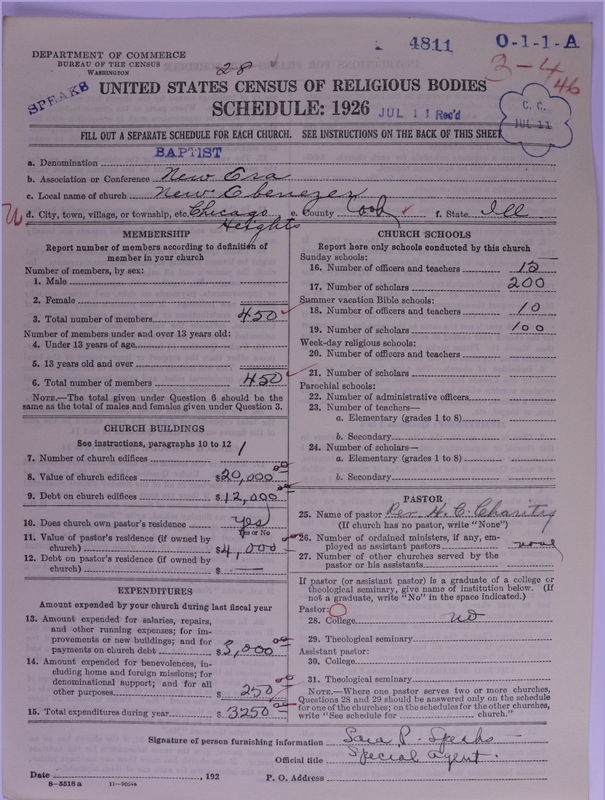 4811 O-1-1-A
DEPARTMENT OF COMMERCE
BUREAU OF THE CENSUS
WASHINGTON
28
3-4
46
SPEAKS
UNITED STATES CENSUS OF RELIGIOUS BODIES
SCHEDULE: 1926 JUL 11 Rec'd
C. C.
JUL 11
FILL OUT A SEPARATE SCHEDULE FOR EACH CHURCH. SEE INSTRUCTIONS ON THE BACK OF THIS SHEET
a. Denomination BAPTIST
b. Association or Conference New Era
c. Local name of church New Ebenezer
d. City, town, village, or township, etc. Chicago Heights e. County Cook f. State Ill
MEMBERSHIP
Report number of members according to definition of
member in your church
Number of members, by sex:
1. Male
2. Female
3. Total number of members 450
Number of members under and over 13 years old:
4. Under 13 years of age
5. 13 years old and over
6. Total number of members 450
NOTE.—The total given under Question 6 should be
same as the total of males and females given under Question 3.
CHURCH BUILDINGS
See instructions, paragraphs 10 to 12
7. Number of church edifices 1
8. Value of church edifices $20,000.00
9. Debt on church edifices $12,000.00
10. Does church own pastor's residence yes
Yes or No
11. Value of pastor's residence (if owned by
church) $4,000.00
12. Debt on pastor's residence (if owned by
church) $ —
EXPENDITURES
Amount expended by your church during last fiscal year
13. Amount expended for salaries, repairs,
and other running expenses; for im-
provements or new buildings; and for
payments on church debt $3,000.00
14. Amount expended for benevolences, in-
cluding home and foreign missions; for
denominational support; and for all
other purposes $250.00
15. Total expenditures during year $3250.00
CHURCH SCHOOLS
Report here only schools conducted by this church
Sunday schools:
16. Number of officers and teachers 12
17. Number of scholars 200
Summer vacation Bible schools:
18. Number of officers and teachers 10
19. Number of scholars 100
Week-day religious schools:
20. Number of officers and teachers
21. Number of scholars
Parochial schools:
22. Number of administrative officers
23. Number of teachers—
a. Elementary (grades 1 to 8)
b. Secondary
24. Number of scholars—
a. Elementary (grades 1 to 8)
b. Secondary
PASTOR
25. Name of pastor Rev. H. C. Charity
(If church has no pastor, write "None")
26. Number of ordained ministers, if any, em-
ployed as assistant pastors none
27. Number of other churches served by the
pastor or his assistants
If pastor (or assistant pastor) is a graduate of a college or
theological seminary, give name of institution below. (If
not a graduate, write "No" in the space indicated.)
Pastor:
28. College no
29. Theological seminary
Assistant pastor:
30. College
31. Theological seminary
NOTE.—Where one pastor serves two or more churches,
Questions 28 and 29 should be answered only on the schedule
for one of the churches; on the schedules for the other churches,
write "See schedule for church."
Signature of person furnishing information Sara P. Speaks
Official title Special agent.
Date , 192 P. O. Address
8—5518 a